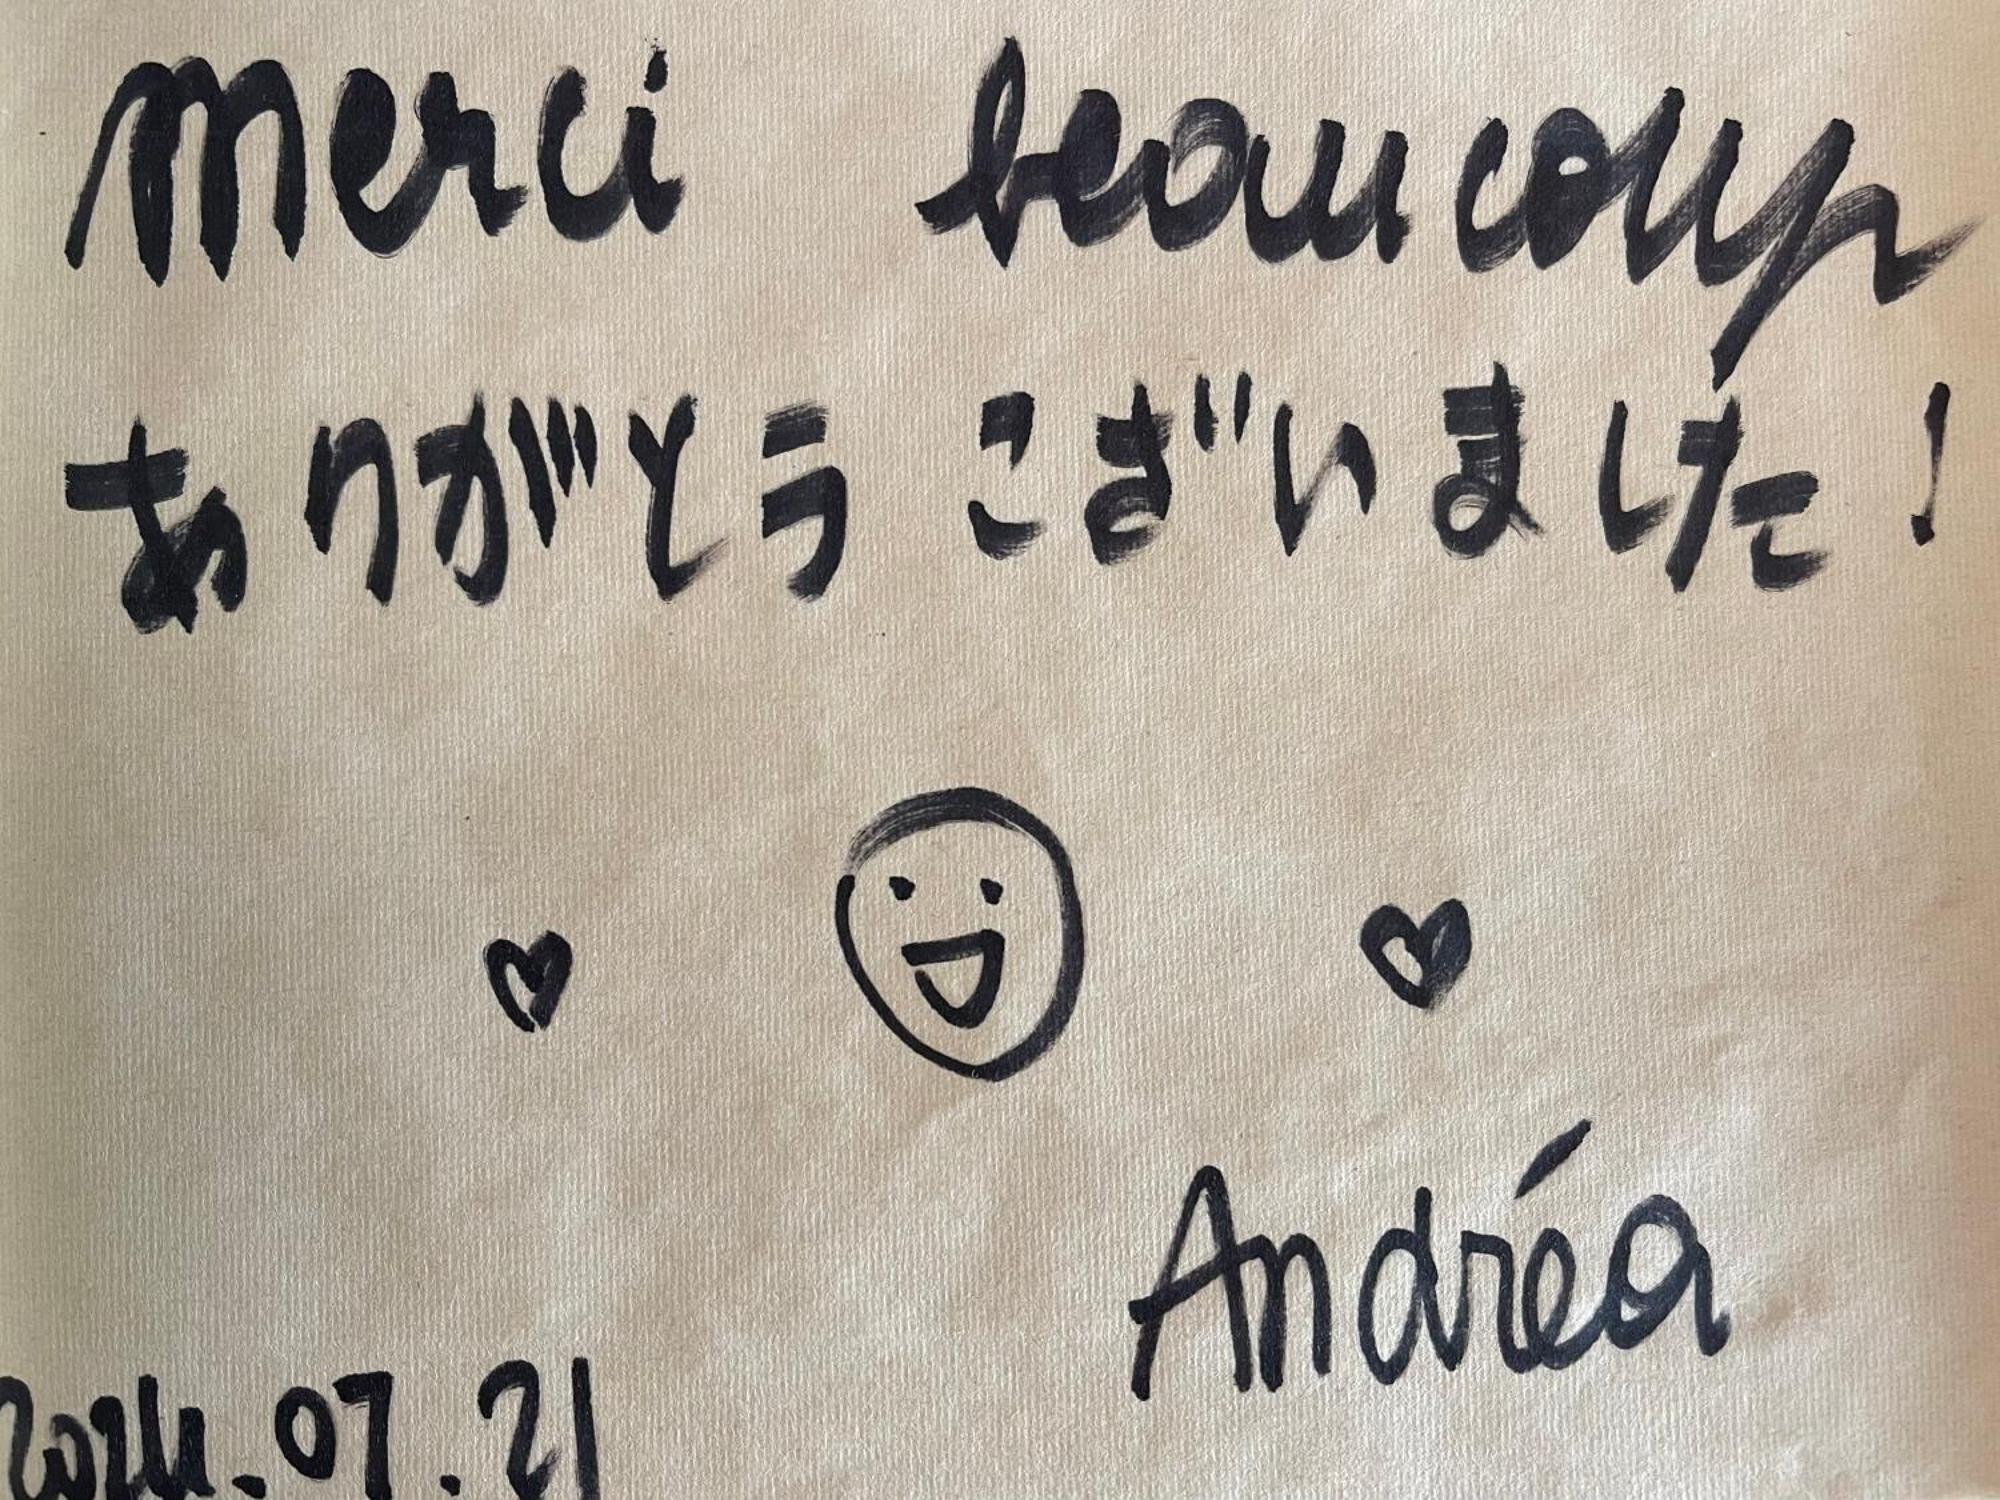 merci beaucoup
ありがとう ございました!
Andréa
2024.07.21